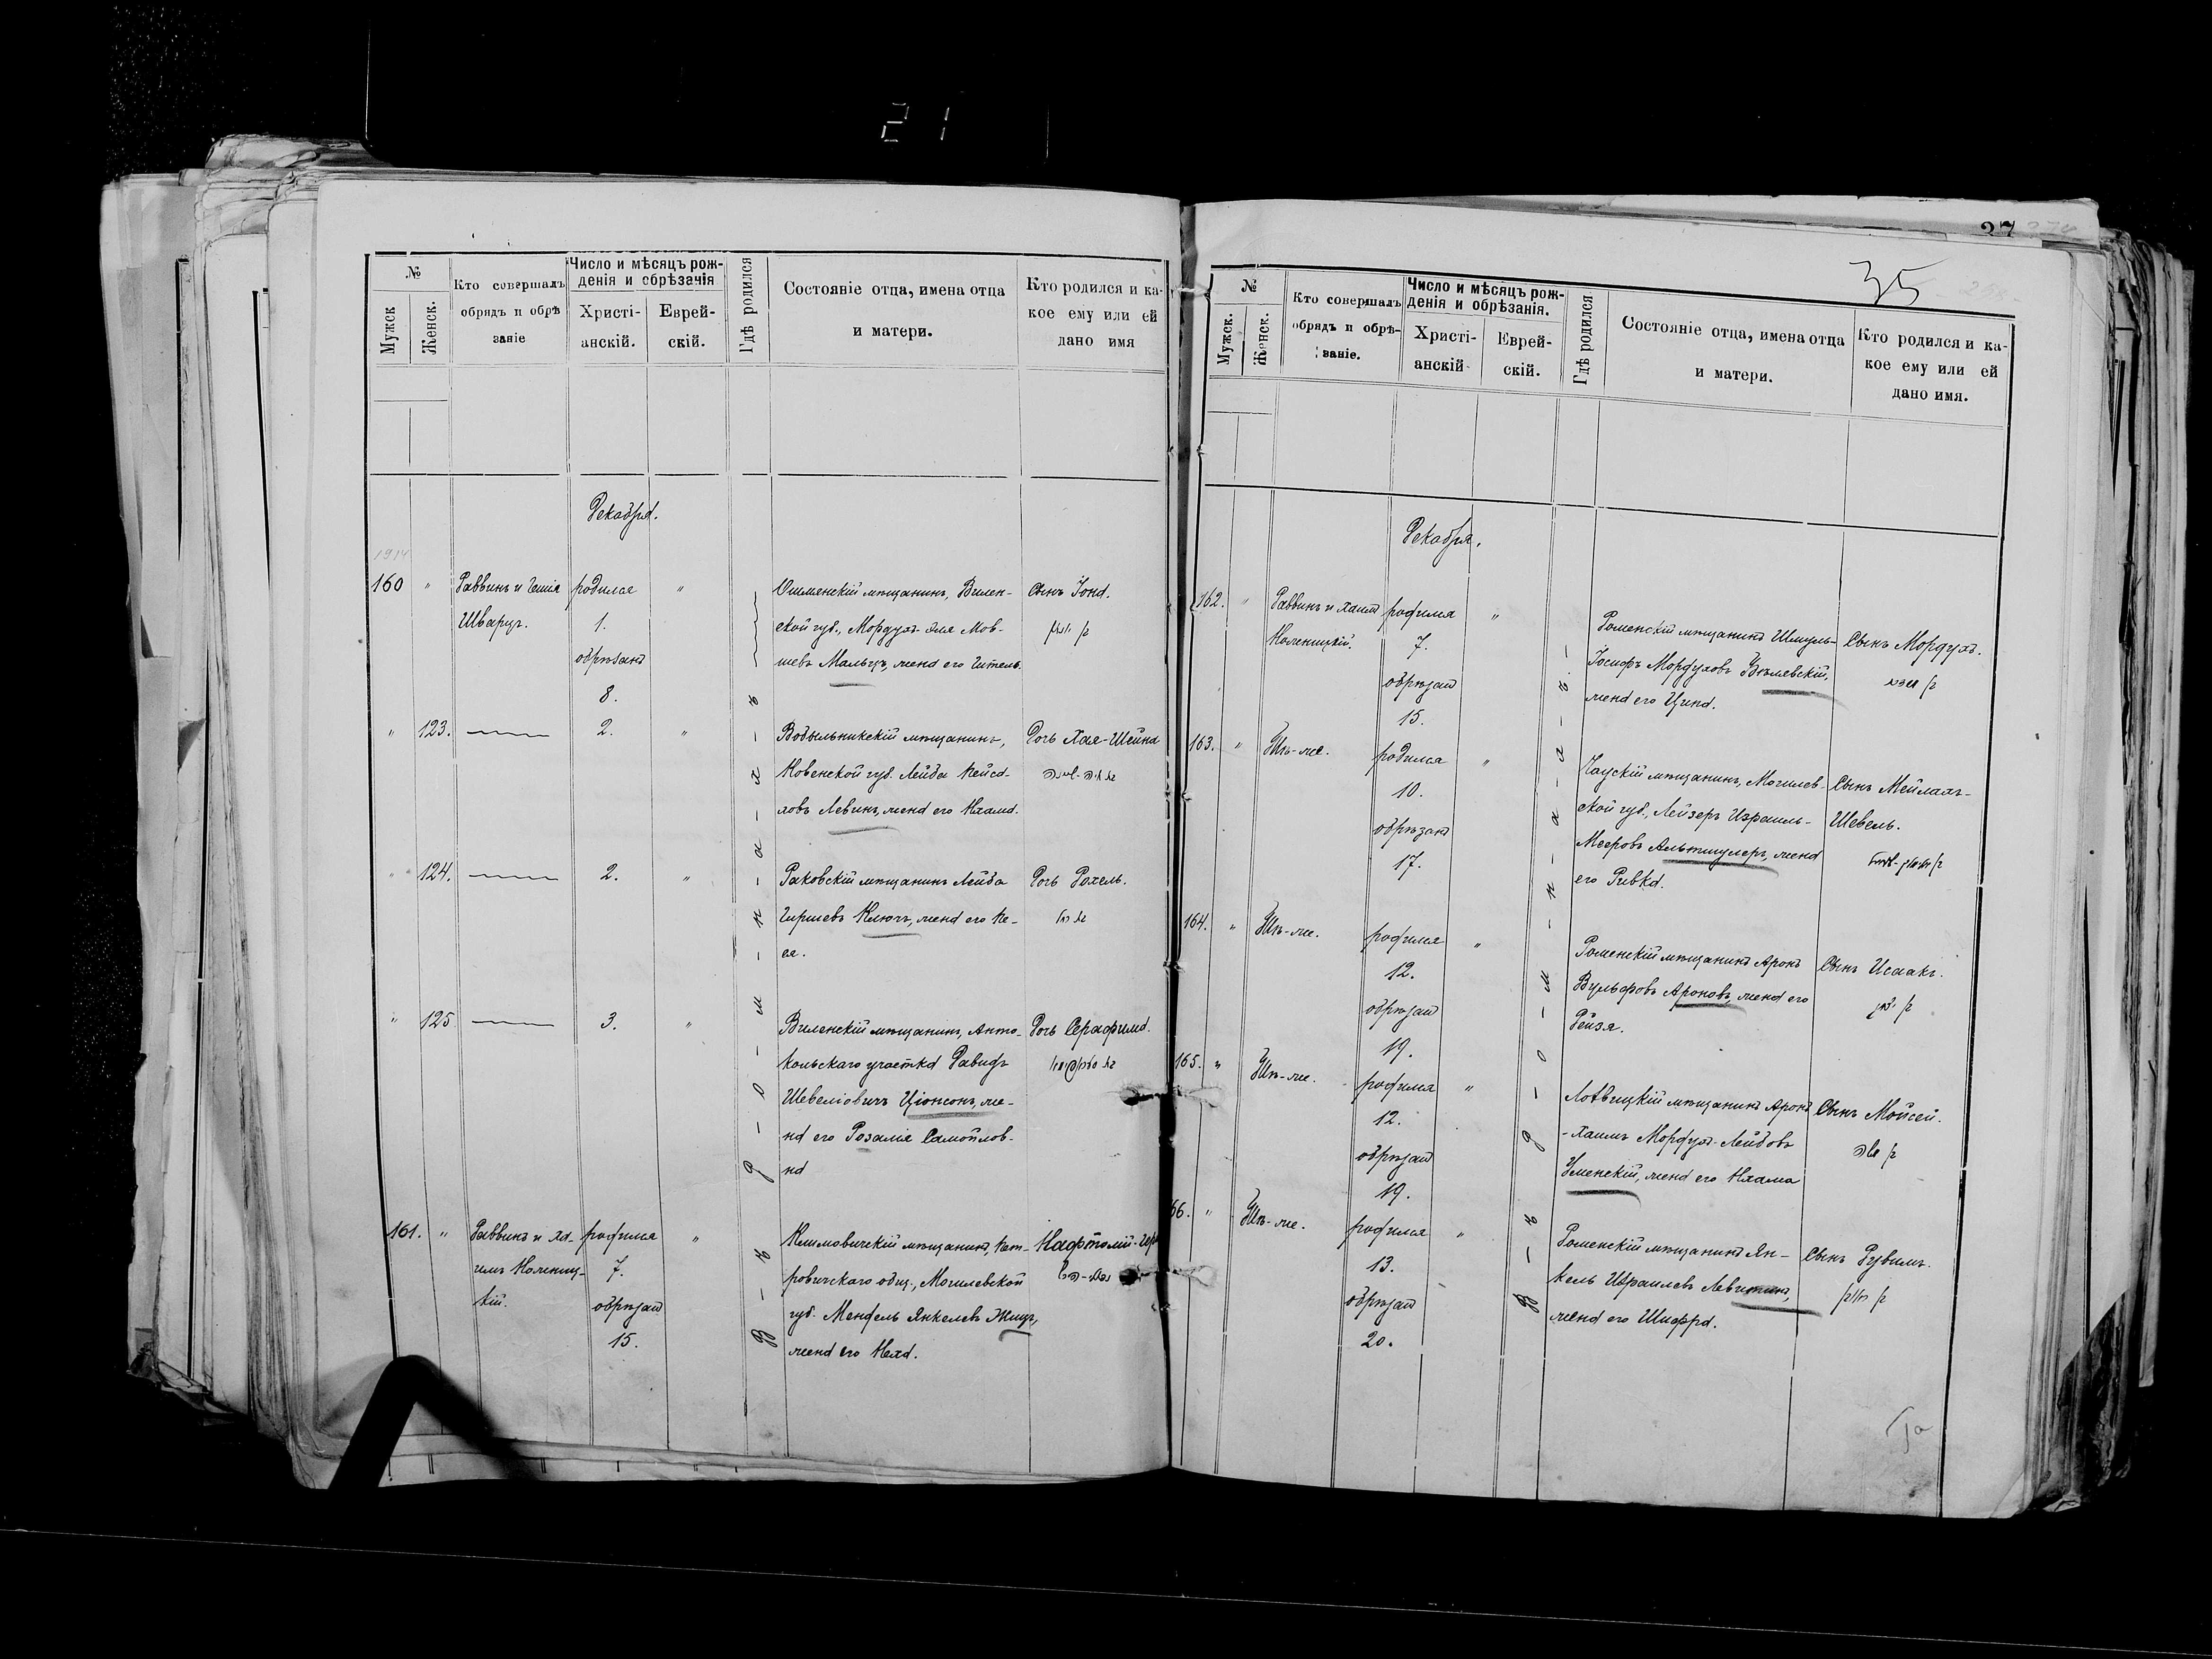 21
№
Мужск
Женск.
Кто совершалъ
обрядъ и обрѣ
заніе
Число и мѣсяцъ рож-
денія и обрѣзанія
Христі-
анскій.
Еврей-
скій.
Гдѣ родился
Состояніе отца, имена отца
и матери.
Кто родился и ка-
кое ему или ей
дано имя
Декабря.
1914
160 " Раввинъ и
Шварцъ.
родился
1.
обрѣзанъ
8.
"
Ошмянскій мѣщанинъ, Вилен-
ской губ., Мордухъ-Эля Мов-
шевъ Мальцъ, жена его Гитель.
Сынъ Іона.
בן יונה
" 123. 2. "
Вобыльникскій мѣщанинъ,
Ковенской губ. Лейба Пейса-
ховъ Левинъ, жена его Нхама.
Дочь Хая-Шейна
בת חיה-שיינה
" 124. 2. "
Раковскій мѣщанинъ Лейба
Гиршевъ Ключъ, жена его Пе-
ся.
Дочь Рахель.
בת רחל
" 125 3. "
Виленскій мѣщанинъ, Анто-
кольскаго участка Давидъ
Шевеліовичъ Ціонсонъ, же-
на его Розалія Самойлов-
на
Дочь Серафима.
161. " Раввинъ и Ха-
имъ Нолениц-
кій.
родился
7.
обрѣзанъ
15.
"
Климовичскій мѣщанинъ, Пет-
ровичскаго общ., Могилевской
губ. Мендель Янкелевъ Жицъ,
жена его Неха.
Нафтолій-
В - ъ - Р - о - м - н - а - х - ъ
37
35
№
Мужск.
Женск.
Кто совершалъ
обрядъ и обрѣ-
заніе.
Число и мѣсяцъ рож-
денія и обрѣзанія.
Христі-
анскій
Еврей-
скій.
Гдѣ родился
Состояніе отца, имена отца
и матери.
Кто родился и ка-
кое ему или ей
дано имя.
Декабря.
162. " Раввинъ и Хаимъ
Ноленицкій.
родился
7.
обрѣзанъ
15.
"
Роменскій мѣщанинъ Шмуль-
Іосифъ Мордуховъ
жена его Цина.
Сынъ Мордухъ.
בן מרדכי
163. " Тѣ-же.
родился
10.
обрѣзанъ
17.
"
Чаускій мѣщанинъ, Могилев-
ской губ., Лейзеръ Израиль-
Мееровъ Альтшулеръ, жена
его Ривка.
Сынъ Мейлахъ-
Шевель.
164. " Тѣ-же.
родился
12.
обрѣзанъ
19.
"
Роменскій мѣщанинъ Аронъ
Вульфовъ Ароновъ, жена его
Рейзя.
Сынъ Исаакъ.
בן יצחק
165. " Тѣ-же.
родился
12.
обрѣзанъ
19.
"
мѣщанинъ Аронъ
-Хаимъ Мордухъ-Лейбовъ
Уменскій, жена его Нхама
Сынъ Мойсей.
בן משה
66. " Тѣ-же.
родился
13.
обрѣзанъ
20.
"
Роменскій мѣщанинъ Ян-
кель Израилевъ Левитинъ,
жена его Шифра.
Сынъ Рувимъ.
בן ראובן
В - ъ - Р - о - м - н - а - х - ъ